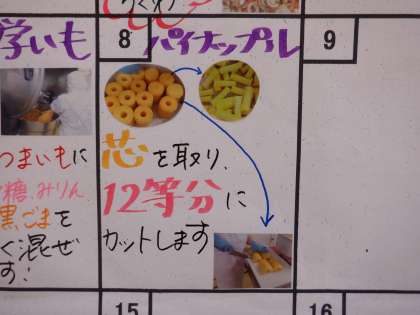 くわ
学いも
8
パイナップル
9
つまいもに
糖、みりん
黒ごまを
く混ぜ
す!
芯を取り、
12等分に
カットします
15
16